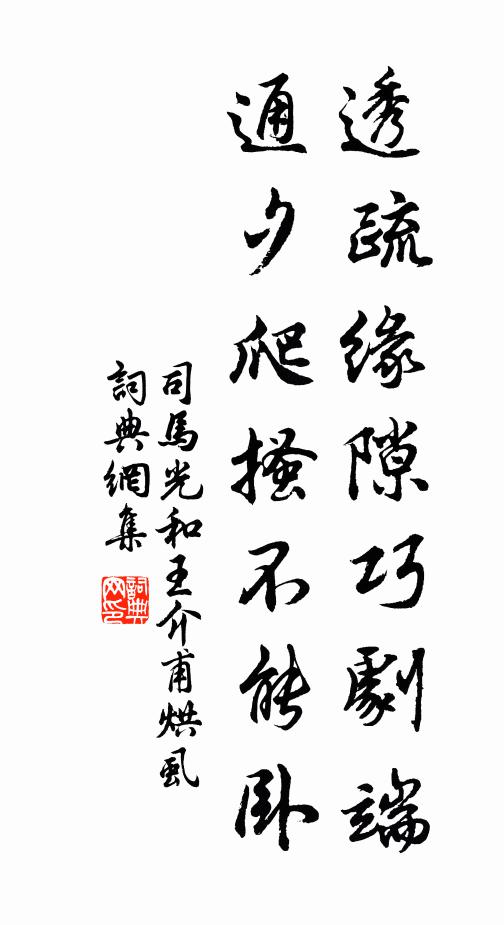 透疏緣隙巧劇端
通夕爬搔不能卧
司馬光和王介甫烘虱
詞典網集
詞典網印